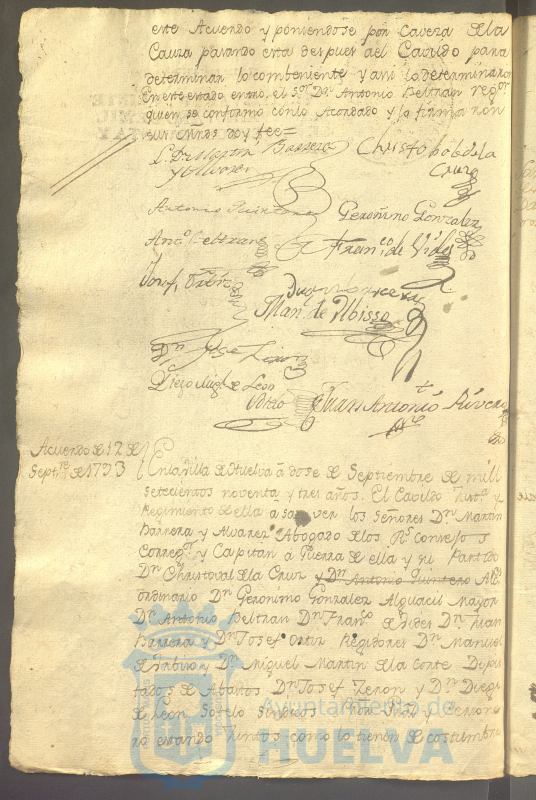 este Acuerdo y poniendose por caveza de la
Causa pasando esta despues al Cavildo para
determinar lo combeniente y assi lo determinaron
En este estado entro el Sor Dn Antonio Beltran regor
quien se conformo con lo Acordado y lo firmaron
sus Mrds doy fee=
Ldo Dn Martin Barrera
y Alvarez
Christobal de la
Cruz
Antonio Quintero
Geronimo Gonzalez
Anto Beltran
Franco de Vides
Josef Ortiz
Juan Barrera
Man. de Ubisso
Dn Josef Zeron
Diego Migl de Leon
Sotelo
Juan Antonio Rivero
Acuerdo de 12 de
Septre de 1793
En la villa de Huelva á dose de Septiembre de mill
setecientos noventa y tres años. El Cavildo Justa y
Regimiento de ella á saver los Señores Dn Martin
Barrera y Alvarez Abogado de los Rs Consejos
Corregor y Capitan á Guerra de ella y su Partido
Dn Christoval de la Cruz y Dn Antonio Quintero Alce
ordinario Dn Geronimo Gonzalez Alguacil Mayor
Dn Antonio Beltran Dn Franco de Vides Dn Juan
Barrera y Dn Josef Ortiz Regidores Dn Manuel
de Ubiso y Dn Miguel Martin de la Corte Dipu
tados de Abastos Dn Josef Zeron y Dn Diego
de Leon Sotelo Sindicos Pror Gral y Persone
ro estando Juntos como lo tienen de costumbre
Ayuntamiento de
HUELVA